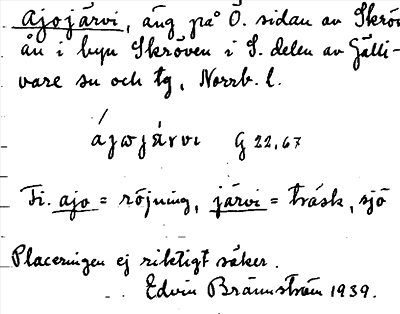 Ajojärvi, äng på Ö. sidan av Skröv
ån i byn Skröven i S. delen av Gälli-
vare sn och tg, Norrb. l.
ájwjä́rvi G 22,67
Fi. ajo = röjning, järvi = träsk, sjö
Placeringen ej riktigt säker.
Edvin Brännström 1939.